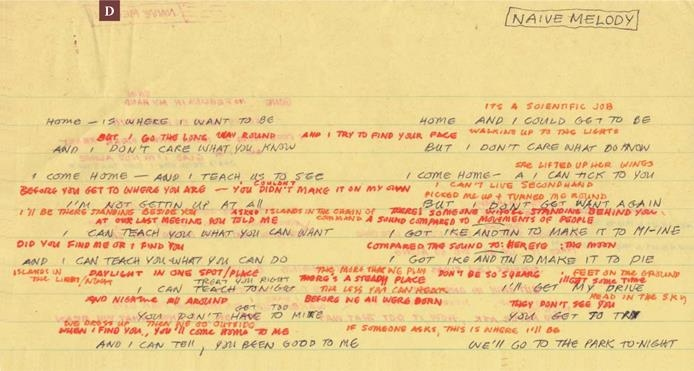 D
NAIVE MELODY
ITS A SCIENTIFIC JOB
HOME — IS WHERE I WANT TO BE HOME AND I COULD GET TO BE
BUT I GO THE LONG WAY ROUND AND I TRY TO FIND YOUR FACE WALKING UP TO THE LIGHTS
AND I DON'T CARE WHAT YOU KNOW BUT I DON'T CARE WHAT DO KNOW
SHE LIFTED UP HER WINGS
I COME HOME — AND I TEACH US TO SEE I COME HOME - A I CAN TICK TO YOU
COULDN'T I CAN'T LIVE SECONDHAND
BEFORE YOU GET TO WHERE YOU ARE — YOU DIDN'T MAKE IT ON MY OWN
PICKED ME UP + TURNED ME ROUND
I'M NOT GETTIN UP AT ALL BUT I DON'T GET WANT AGAIN
I'LL BE THERE STANDING BESIDE YOU ISLANDS IN THE CHAIN OF COMMAND THERE'S SOMEONE STANDING BEHIND YOU
AT OUR LAST MEETING YOU TOLD ME A SOUND COMPARED TO MOVEMENTS OF PEOPLE
I CAN TEACH YOU WHAT YOU CAN WANT I GOT IKE AND TIN TO MAKE IT TO MI-INE
DID YOU FIND ME OR I FIND YOU COMPARED THE SOUND TO: THE MOON
AND I CAN TEACH YOU WHAT YOU CAN DO I GOT IKE AND TIN TO MAKE IT TO PIE
ISLANDS IN DAYLIGHT IN ONE SPOT/PLACE THE MORE THAT WE PLAY DON'T BE SO SQUARE FEET ON THE GROUND
THE TREAT YOU RIGHT THERE'S A STEADY PLACE I'LL GET SOME TIME
I CAN TEACH TONIGHT THE LESS YOU CAN HEAR I'LL GET MY DRIVE
HEAD IN THE SKY
AND NIGHTIME ALL AROUND BEFORE WE ALL WERE BORN THEY DON'T SEE YOU
GET TOO
YOU DON'T HAVE TO YOU GET TO
WE DRESS UP THEN WE GO OUTSIDE
WHEN I FIND YOU, YOU'LL COME HOME TO ME IF SOMEONE ASKS, THIS IS WHERE I'LL BE
AND I CAN TELL, YOU BEEN GOOD TO ME WE'LL GO TO THE PARK TO-NIGHT